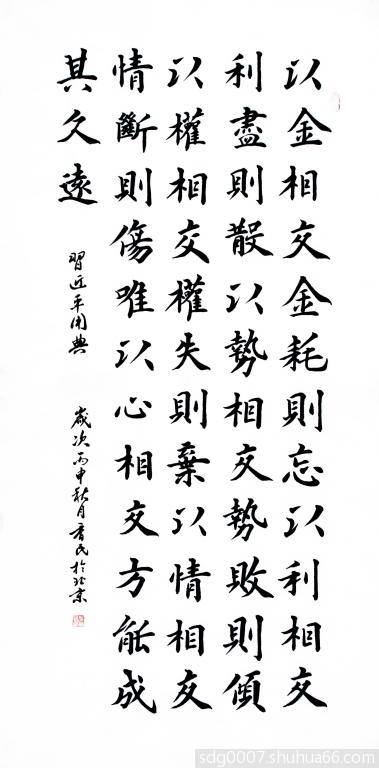 以金相交金耗則忘以利相交
利盡則散以勢相交勢敗則傾
以權相交權失則棄以情相交
情斷則傷唯以心相交方能成
其久遠
習近平用典
歲次丙申秋月 民於北京
sdg0007.shuhua66.com